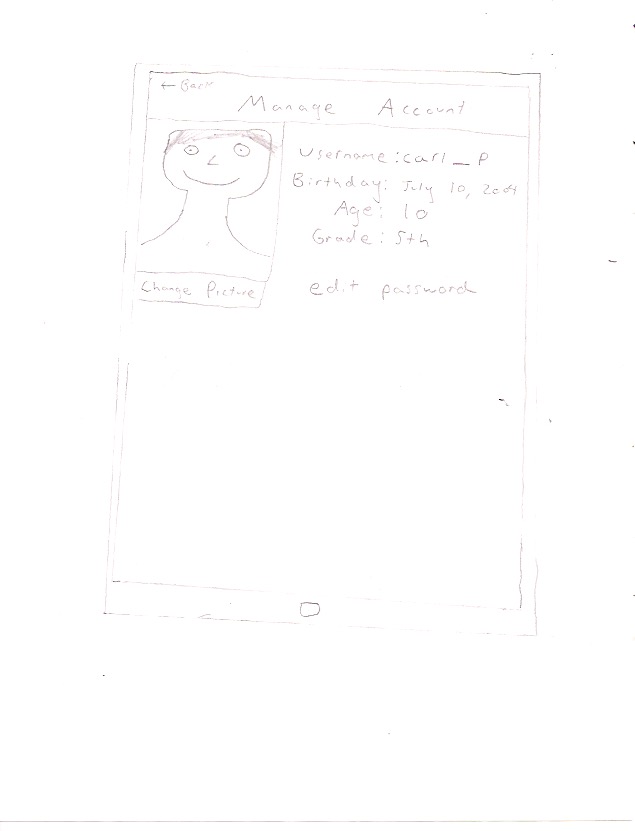 ← Back
Manage Account
Username: carl_P
Birthday: July 10, 2004
Age: 10
Grade: 5th
Change Picture
edit password